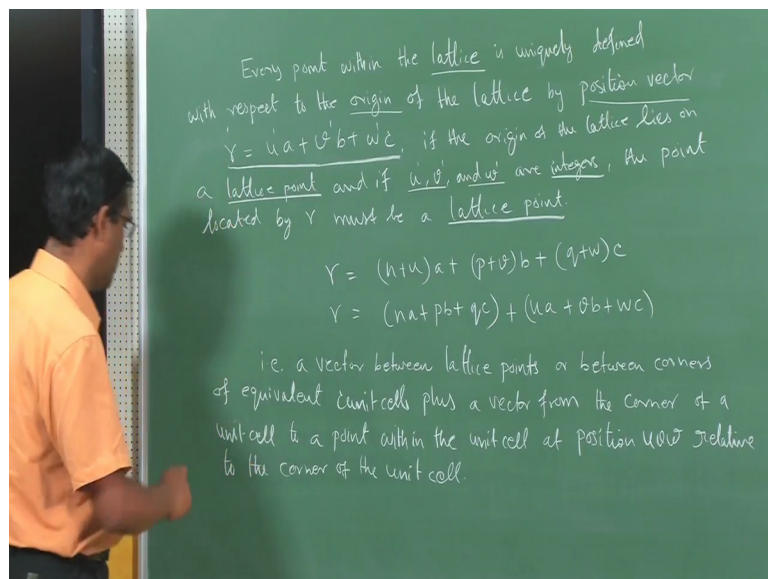 Every point within the lattice is uniquely defined
with respect to the origin of the lattice by position vector
r' = u'a + v'b + w'c, if the origin of the lattice lies on
a lattice point and if u', v', and w' are integers, the point
located by r must be a lattice point.
r = (n+u)a + (p+v)b + (q+w)c
r = (na+pb+qc) + (ua + vb + wc)
i.e. a vector between lattice points or between corners
of equivalent unit cells plus a vector from the corner of a
unit cell to a point within the unit cell at position uvw relative
to the corner of the unit cell.